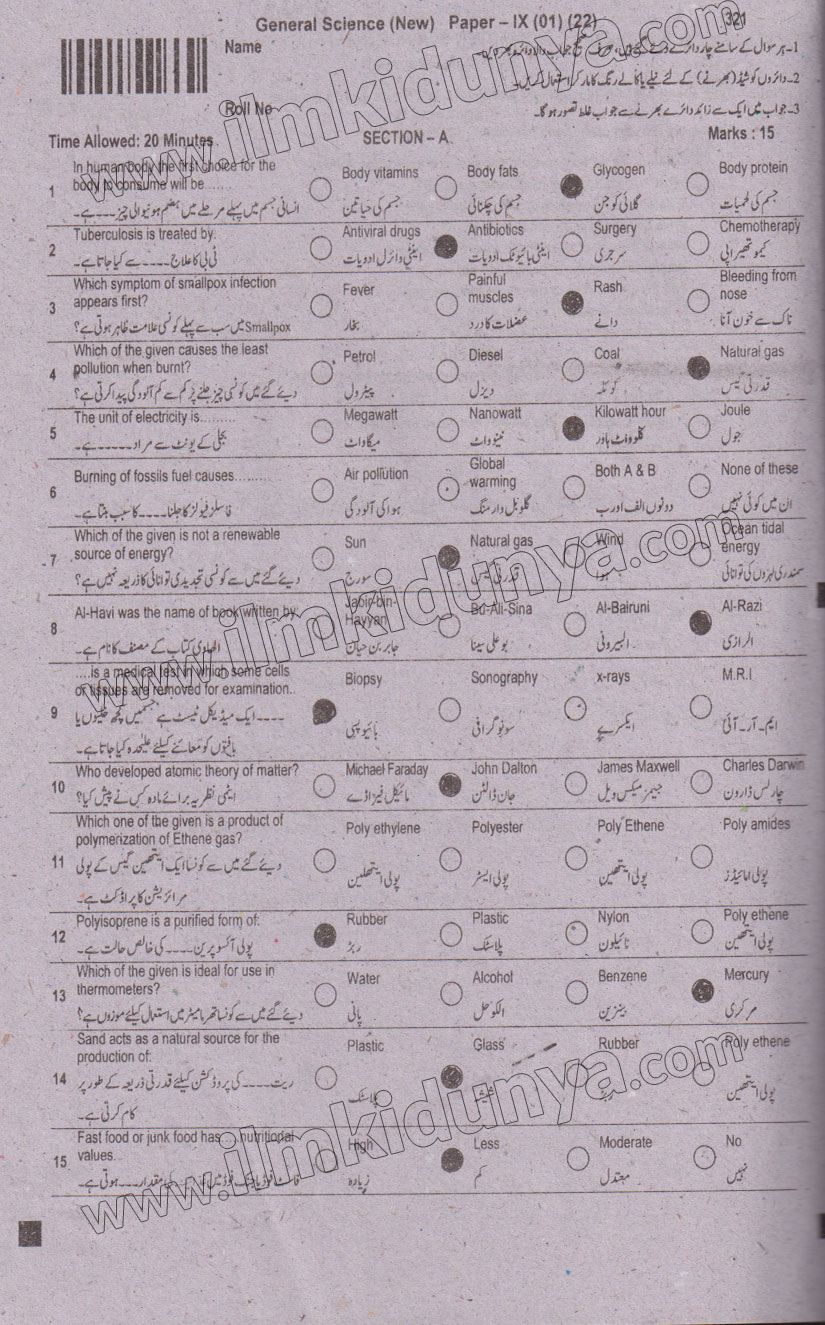 General Science (New) Paper – IX (01) (22) 321
Name
1۔ ہر سوال کے سامنے چار دائرے دئے گئے ہیں، صرف صحیح جواب والا دائرہ بھریں۔
2۔ دائروں کو شیڈ (بھرنے) کے لئے نیلے یا کالے رنگ کا مارکر استعمال کریں۔
Roll No
3۔ جواب میں ایک سے زائد دائرے بھرنے سے جواب غلط تصور ہو گا۔
Time Allowed: 20 Minutes SECTION – A. Marks : 15
1 In human body the first choice for the body to consume will be......
Body vitamins Body fats Glycogen Body protein
انسانی جسم میں پہلے مرحلے میں ہضم ہونیوالی چیز ۔۔۔۔ ہے۔
جسم کی حیاتین جسم کی چکنائی گلائی کوجن جسم کی لحمیات
2 Tuberculosis is treated by:
Antiviral drugs Antibiotics Surgery Chemotherapy
ٹی بی کا علاج ۔۔۔۔ سے کیا جاتا ہے۔
اینٹی وائرل ادویات اینٹی بائیوٹک ادویات سرجری کیموتھیراپی
3 Which symptom of smallpox infection appears first?
Fever Painful muscles Rash Bleeding from nose
Smallpox میں سب سے پہلے کونسی علامت ظاہر ہوتی ہے؟
بخار عضلات کا درد دانے ناک سے خون آنا
4 Which of the given causes the least pollution when burnt?
Petrol Diesel Coal Natural gas
دیئے گئے میں کونسی چیز جلنے پر کم سے کم آلودگی پیدا کرتی ہے؟
پیٹرول ڈیزل کوئلہ قدرتی گیس
5 The unit of electricity is.........
Megawatt Nanowatt Kilowatt hour Joule
بجلی کے یونٹ سے مراد ۔۔۔۔۔ ہے۔
میگاواٹ نینوواٹ کلوواٹ ہاور جول
6 Burning of fossils fuel causes.........
Air pollution Global warming Both A & B None of these
فاسلز فیولز کا جلنا ۔۔۔۔ کا سبب بنتا ہے۔
ہوا کی آلودگی گلوبل وارمنگ دونوں الف اور ب ان میں کوئی نہیں
7 Which of the given is not a renewable source of energy?
Sun Natural gas Wind Ocean tidal energy
دیئے گئے میں سے کونسی تجدیدی توانائی کا ذریعہ نہیں ہے؟
سورج قدرتی گیس ہوا سمندری لہروں کی توانائی
8 Al-Havi was the name of book written by:
Jabir-bin-Hayyan Bu-Ali-Sina Al-Bairuni Al-Razi
الھاوی کتاب کے مصنف کا نام ہے۔
جابر بن حیان بو علی سینا البیرونی الرازی
9 ....is a medical test in which some cells or tissues are removed for examination..
Biopsy Sonography x-rays M.R.I.
۔۔۔۔ ایک میڈیکل ٹیسٹ ہے جسمیں کچھ خلیوں یا
بافتوں کو معائنے کیلئے علیحدہ کیا جاتا ہے۔
بائیوپسی سونوگرافی ایکسرے ایم۔ آر۔ آئی
10 Who developed atomic theory of matter?
Michael Faraday John Dalton James Maxwell Charles Darwin
ایٹمی نظریہ برائے مادہ کس نے پیش کیا؟
مائیکل فیراڈے جان ڈالٹن جیمز میکس ویل چارلس ڈارون
11 Which one of the given is a product of polymerization of Ethene gas?
Poly ethylene Polyester Poly Ethene Poly amides
دیئے گئے میں سے کونسا ایک ایتھین گیس کے پولی
مرائزیشن کا پراڈکٹ ہے۔
پولی ایتھلین پولی ایسٹر پولی ایتھین پولی امائیڈز
12 Polyisoprene is a purified form of:
Rubber Plastic Nylon Poly ethene
پولی آئسوپرین ۔۔۔۔ کی خالص حالت ہے۔
ربڑ پلاسٹک نائیلون پولی ایتھین
13 Which of the given is ideal for use in thermometers?
Water Alcohol Benzene Mercury
دیئے گئے میں سے کونسا تھرمامیٹر میں استعمال کیلئے موزوں ہے؟
پانی الکوحل بینزین مرکری
14 Sand acts as a natural source for the production of:
Plastic Glass Rubber Poly ethene
ریت ۔۔۔۔ کی پروڈکشن کیلئے قدرتی ذریعہ کے طور پر
کام کرتی ہے۔
پلاسٹک شیشہ ربڑ پولی ایتھین
15 Fast food or junk food has.... nutritional values.
High Less Moderate No
فاسٹ فوڈ یا جنک فوڈ میں کی مقدار ۔۔۔ ہوتی ہے۔
زیادہ کم معتدل نہیں
www.ilmkidunya.com
www.ilmkidunya.com
www.ilmkidunya.com